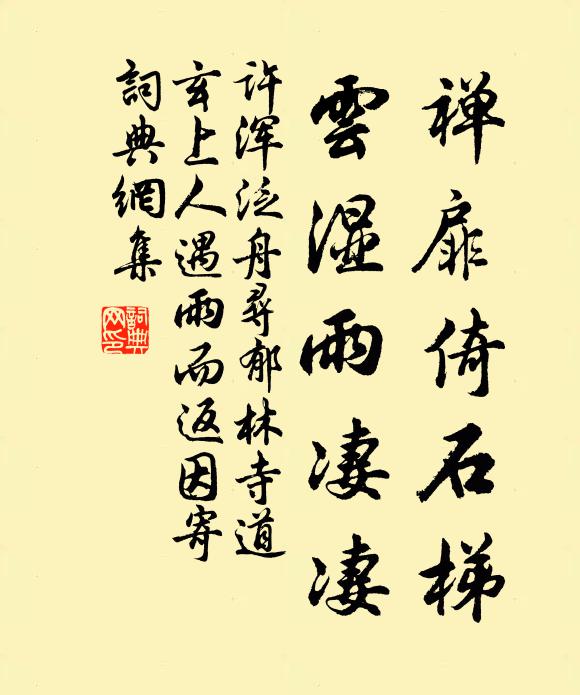 禅扉倚石梯
雲湿雨凄凄
许浑泛舟尋郁林寺道
玄上人遇雨而返因寄
詞典網集
詞典
网印